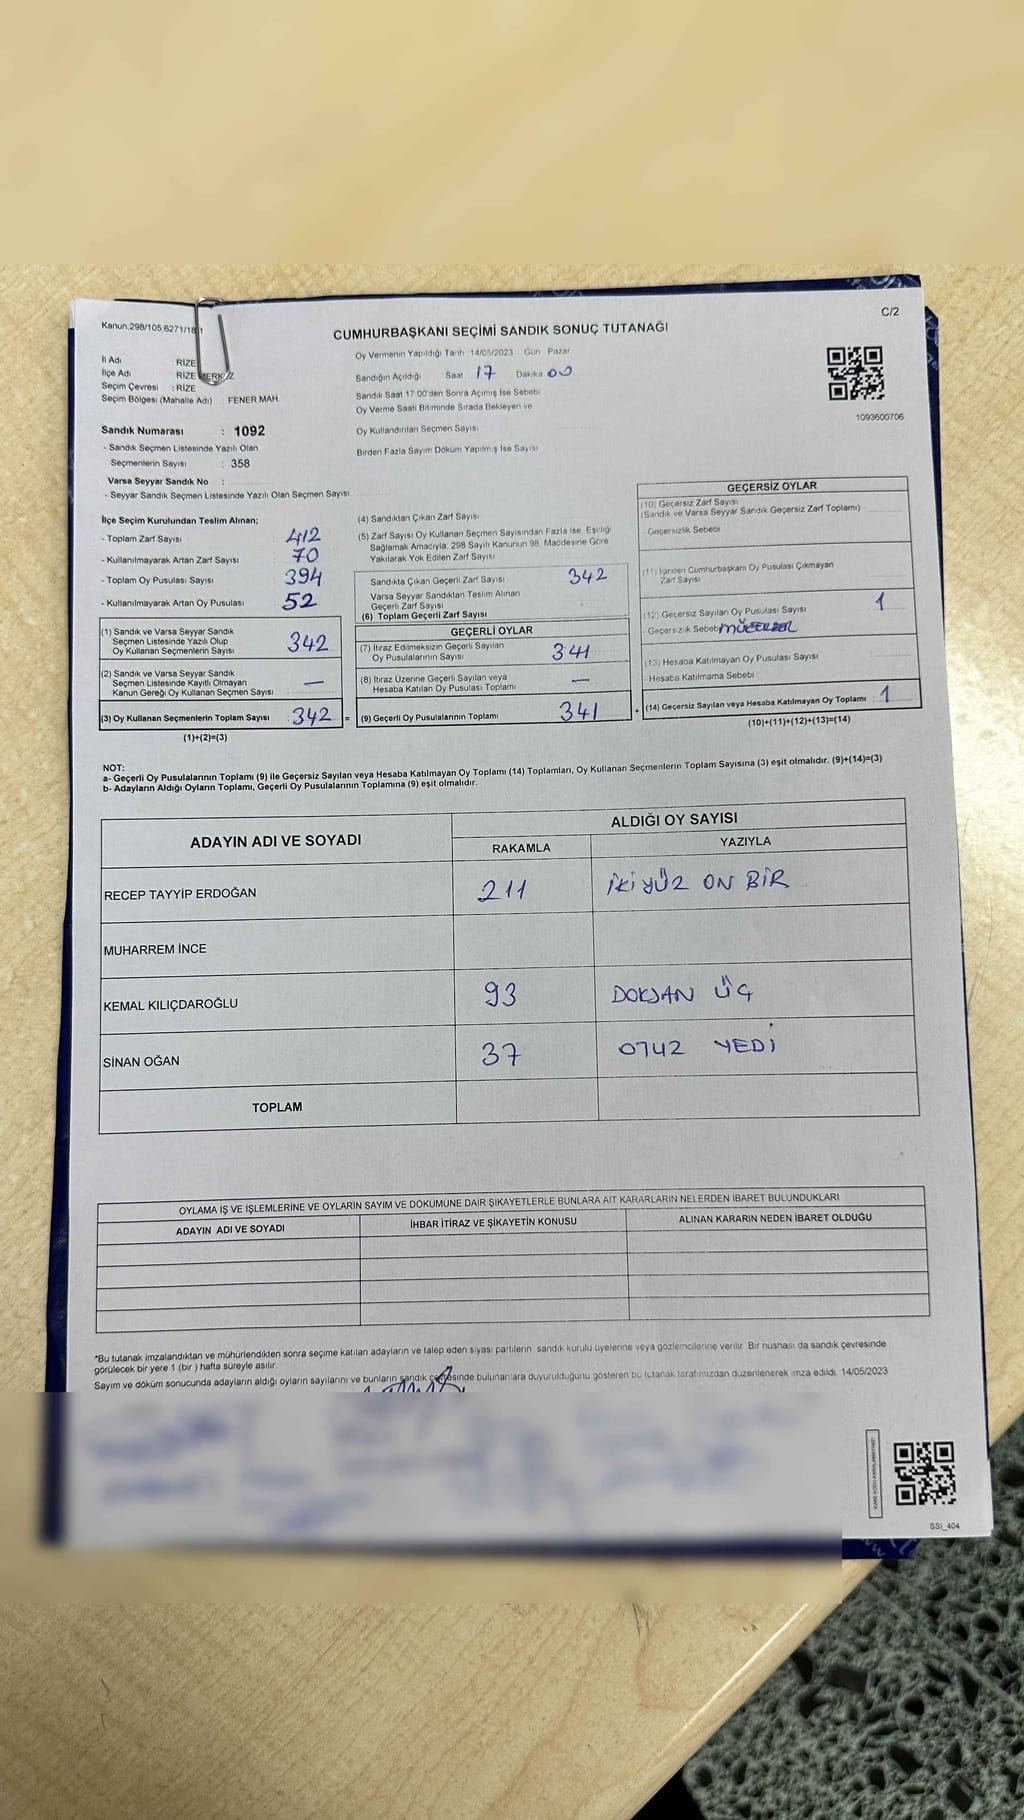 Kanun:298/105,6271/18
C/2
CUMHURBAŞKANI SEÇİMİ SANDIK SONUÇ TUTANAĞI
İl Adı RİZE
İlçe Adı RİZE MERKEZ
Seçim Çevresi : RİZE
Seçim Bölgesi (Mahalle Adı) : FENER MAH.
Oy Vermenin Yapıldığı Tarih 14/05/2023 Gün Pazar
Sandığın Açıldığı Saat 17 Dakika 00
Sandık Saat 17:00'den Sonra Açımış İse Sebebi
Oy Verme Saati Bitiminde Sırada Bekleyen ve
Oy Kullandırılan Seçmen Sayısı
Birden Fazla Sayım Döküm Yapılmış İse Sayısı
1093600706
Sandık Numarası : 1092
- Sandık Seçmen Listesinde Yazılı Olan
Seçmenlerin Sayısı : 358
Varsa Seyyar Sandık No :
- Seyyar Sandık Seçmen Listesinde Yazılı Olan Seçmen Sayısı
İlçe Seçim Kurulundan Teslim Alınan;
- Toplam Zarf Sayısı 412
- Kullanılmayarak Artan Zarf Sayısı 70
- Toplam Oy Pusulası Sayısı 394
- Kullanılmayarak Artan Oy Pusulası 52
(1) Sandık ve Varsa Seyyar Sandık
Seçmen Listesinde Yazılı Olup
Oy Kullanan Seçmenlerin Sayısı 342
(2) Sandık ve Varsa Seyyar Sandık
Seçmen Listesinde Kayıtlı Olmayan
Kanun Gereği Oy Kullanan Seçmen Sayısı —
(3) Oy Kullanan Seçmenlerin Toplam Sayısı : 342 =
(1)+(2)=(3)
(4) Sandıktan Çıkan Zarf Sayısı
(5) Zarf Sayısı Oy Kullanan Seçmen Sayısından Fazla İse, Eşitliği
Sağlamak Amacıyla, 298 Sayılı Kanunun 98. Maddesine Göre
Yakılarak Yok Edilen Zarf Sayısı
Sandıkta Çıkan Geçerli Zarf Sayısı 342
Varsa Seyyar Sandıktan Teslim Alınan
Geçerli Zarf Sayısı
(6) Toplam Geçerli Zarf Sayısı
GEÇERLİ OYLAR
(7) İtiraz Edilmeksizin Geçerli Sayılan
Oy Pusulalarının Sayısı 341
(8) İtiraz Üzerine Geçerli Sayılan veya
Hesaba Katılan Oy Pusulası Toplamı —
(9) Geçerli Oy Pusulalarının Toplamı 341 +
GEÇERSİZ OYLAR
(10) Geçersiz Zarf Sayısı
(Sandık ve Varsa Seyyar Sandık Geçersiz Zarf Toplamı)
- Geçersizlik Sebebi
(11) İçinden Cumhurbaşkanı Oy Pusulası Çıkmayan
Zarf Sayısı
(12) Geçersiz Sayılan Oy Pusulası Sayısı 1
- Geçersizlik Sebebi
(13) Hesaba Katılmayan Oy Pusulası Sayısı
- Hesaba Katılmama Sebebi
(14) Geçersiz Sayılan veya Hesaba Katılmayan Oy Toplamı : 1
(10)+(11)+(12)+(13)=(14)
NOT:
a- Geçerli Oy Pusulalarının Toplamı (9) ile Geçersiz Sayılan veya Hesaba Katılmayan Oy Toplamı (14) Toplamları, Oy Kullanan Seçmenlerin Toplam Sayısına (3) eşit olmalıdır. (9)+(14)=(3)
b- Adayların Aldığı Oyların Toplamı, Geçerli Oy Pusulalarının Toplamına (9) eşit olmalıdır.
ADAYIN ADI VE SOYADI
ALDIĞI OY SAYISI
RAKAMLA YAZIYLA
RECEP TAYYİP ERDOĞAN 211 İKİYÜZ ON BİR
MUHARREM İNCE
KEMAL KILIÇDAROĞLU 93 DOKSAN ÜÇ
SİNAN OĞAN 37 OTUZ YEDİ
TOPLAM
OYLAMA İŞ VE İŞLEMLERİNE VE OYLARIN SAYIM VE DÖKÜMÜNE DAİR ŞİKAYETLERLE BUNLARA AİT KARARLARIN NELERDEN İBARET BULUNDUKLARI
ADAYIN ADI VE SOYADI İHBAR İTİRAZ VE ŞİKAYETİN KONUSU ALINAN KARARIN NEDEN İBARET OLDUĞU
*Bu tutanak imzalandıktan ve mühürlendikten sonra seçime katılan adayların ve talep eden siyasi partilerin sandık kurulu üyelerine veya gözlemcilerine verilir. Bir nüshası da sandık çevresinde
görülecek bir yere 1 (bir) hafta süreyle asılır.
Sayım ve döküm sonucunda adayların aldığı oyların sayılarını ve bunların sandık çevresinde bulunanlara duyurulduğunu gösteren bu tutanak tarafımızdan düzenlenerek imza edildi. 14/05/2023
SSİ_404